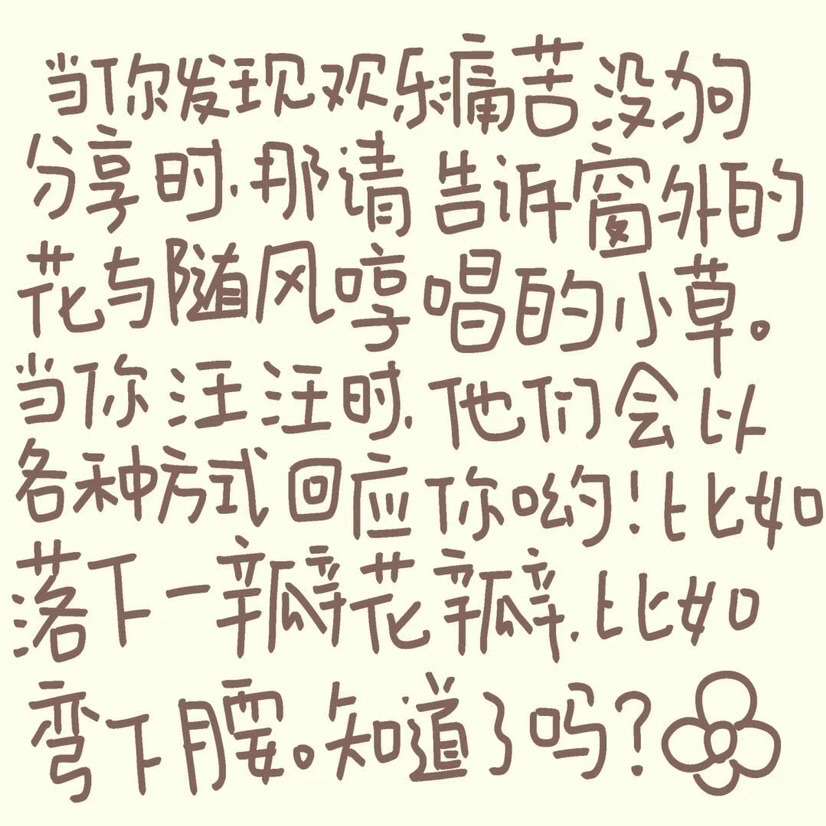 当你发现欢乐痛苦没狗
分享时,那请告诉窗外的
花与随风哼唱的小草。
当你汪汪时,他们会以
各种方式回应你哟!比如
落下一瓣花瓣,比如
弯下腰。知道了吗?